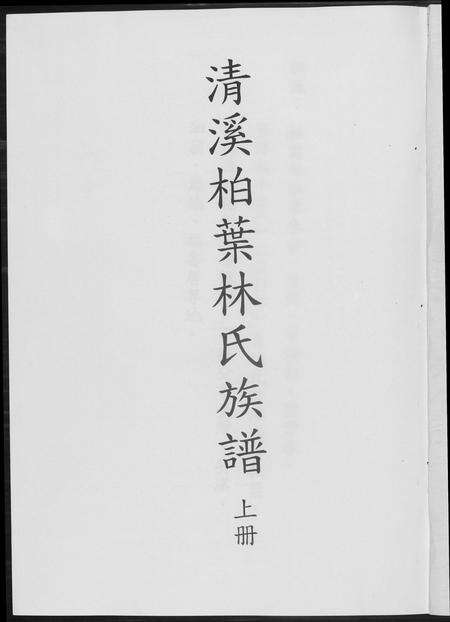 清溪柏葉林氏族譜
上册